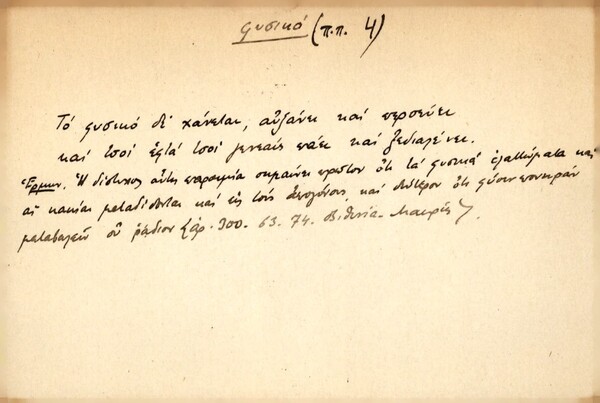 φυσικό (π.π. 4)
Τό φυσικό δέ χάνεται, αὐξάνει καί περσεύει
καί ἐφτά γενεαίς πάει καί
Ἑρμην. Ἡ δίστιχος αὕτη παροιμία σημαίνει πρῶτον ὅτι τά φυσικά ἐλαττώματα καί
αἱ κακίαι μεταδίδονται καί εἰς τούς ἀπογόνους καί δεύτερον ὅτι φύσιν πονηράν
μεταβαλεῖν οὐ ῥάδιον ἀρ. 300. 63. 74. Βιθυνία.